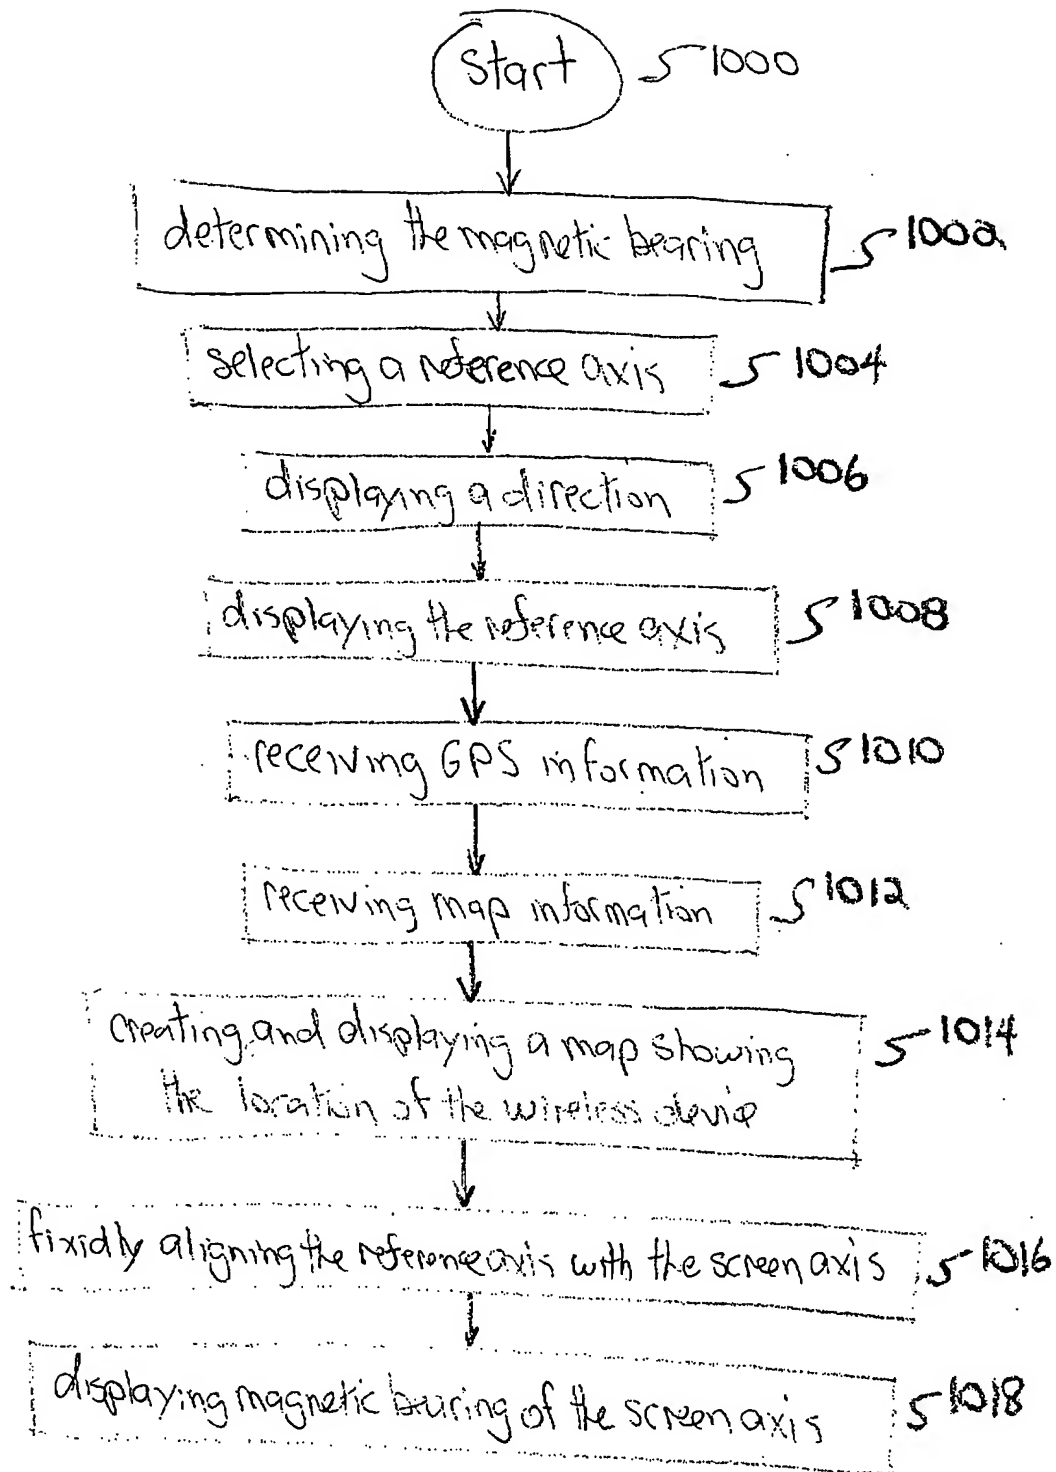 Start 1000
determining the magnetic bearing 1002
selecting a reference axis 1004
displaying a direction 1006
displaying the reference axis 1008
receiving GPS information 1010
receiving map information 1012
creating and displaying a map showing 1014
the location of the wireless device
fixidly aligning the reference axis with the screen axis 1016
displaying magnetic bearing of the screen axis 1018